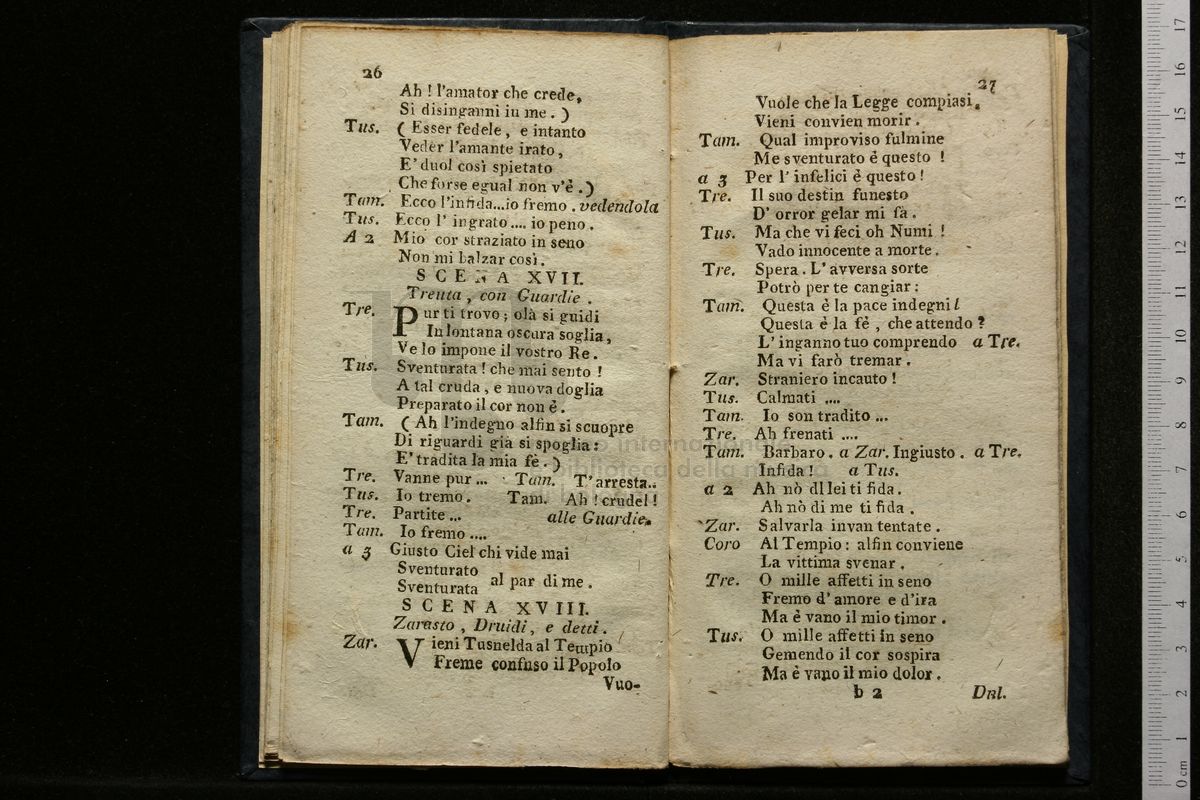 26
Ah ! l'amator che crede,
Si disinganni in me . )
Tus. ( Esser fedele , e intanto
Veder l'amante irato,
E' duol così spietato
Che forse egual non v'è . )
Tam. Ecco l'infida...io fremo . vedendola
Tus. Ecco l' ingrato .... io peno .
A 2 Mio cor straziato in seno
Non mi balzar così .
SCENA XVII.
Trenta , con Guardie .
Tre. Pur ti trovo ; olà si guidi
In lontana oscura soglia,
Ve lo impone il vostro Re .
Tus. Sventurata ! che mai sento !
A tal cruda , e nuova doglia
Preparato il cor non è .
Tam. ( Ah l'indegno alfin si scuopre
Di riguardi già si spoglia :
E' tradita la mia fè . )
Tre. Vanne pur ... Tam. T'arresta..
Tus. Io tremo . Tam. Ah ! crudel !
Tre. Partite ... alle Guardie.
Tam. Io fremo ....
a 3 Giusto Ciel chi vide mai
Sventurato
Sventurata al par di me .
SCENA XVIII.
Zarasto , Druidi , e detti .
Zar. Vieni Tusnelda al Tempio
Freme confuso il Popolo
Vuo-
27
Vuole che la Legge compiasi.
Vieni convien morir .
Tam. Qual improviso fulmine
Me sventurato è questo !
a 3 Per l' infelici è questo !
Tre. Il suo destin funesto
D' orror gelar mi fà .
Tus. Ma che vi feci oh Numi !
Vado innocente a morte .
Tre. Spera . L' avversa sorte
Potrò per te cangiar :
Tam. Questa è la pace indegni !
Questa è la fè , che attendo ?
L' inganno tuo comprendo a Tre.
Ma vi farò tremar .
Zar. Straniero incauto !
Tus. Calmati ....
Tam. Io son tradito ...
Tre. Ah frenati ....
Tam. Barbaro . a Zar. Ingiusto . a Tre.
Infida ! a Tus.
a 2 Ah nò di lei ti fida .
Ah nò di me ti fida .
Zar. Salvarla invan tentate .
Coro Al Tempio : alfin conviene
La vittima svenar .
Tre. O mille affetti in seno
Fremo d' amore e d'ira
Ma è vano il mio timor .
Tus. O mille affetti in seno
Gemendo il cor sospira
Ma è vano il mio dolor .
b 2 Dal.